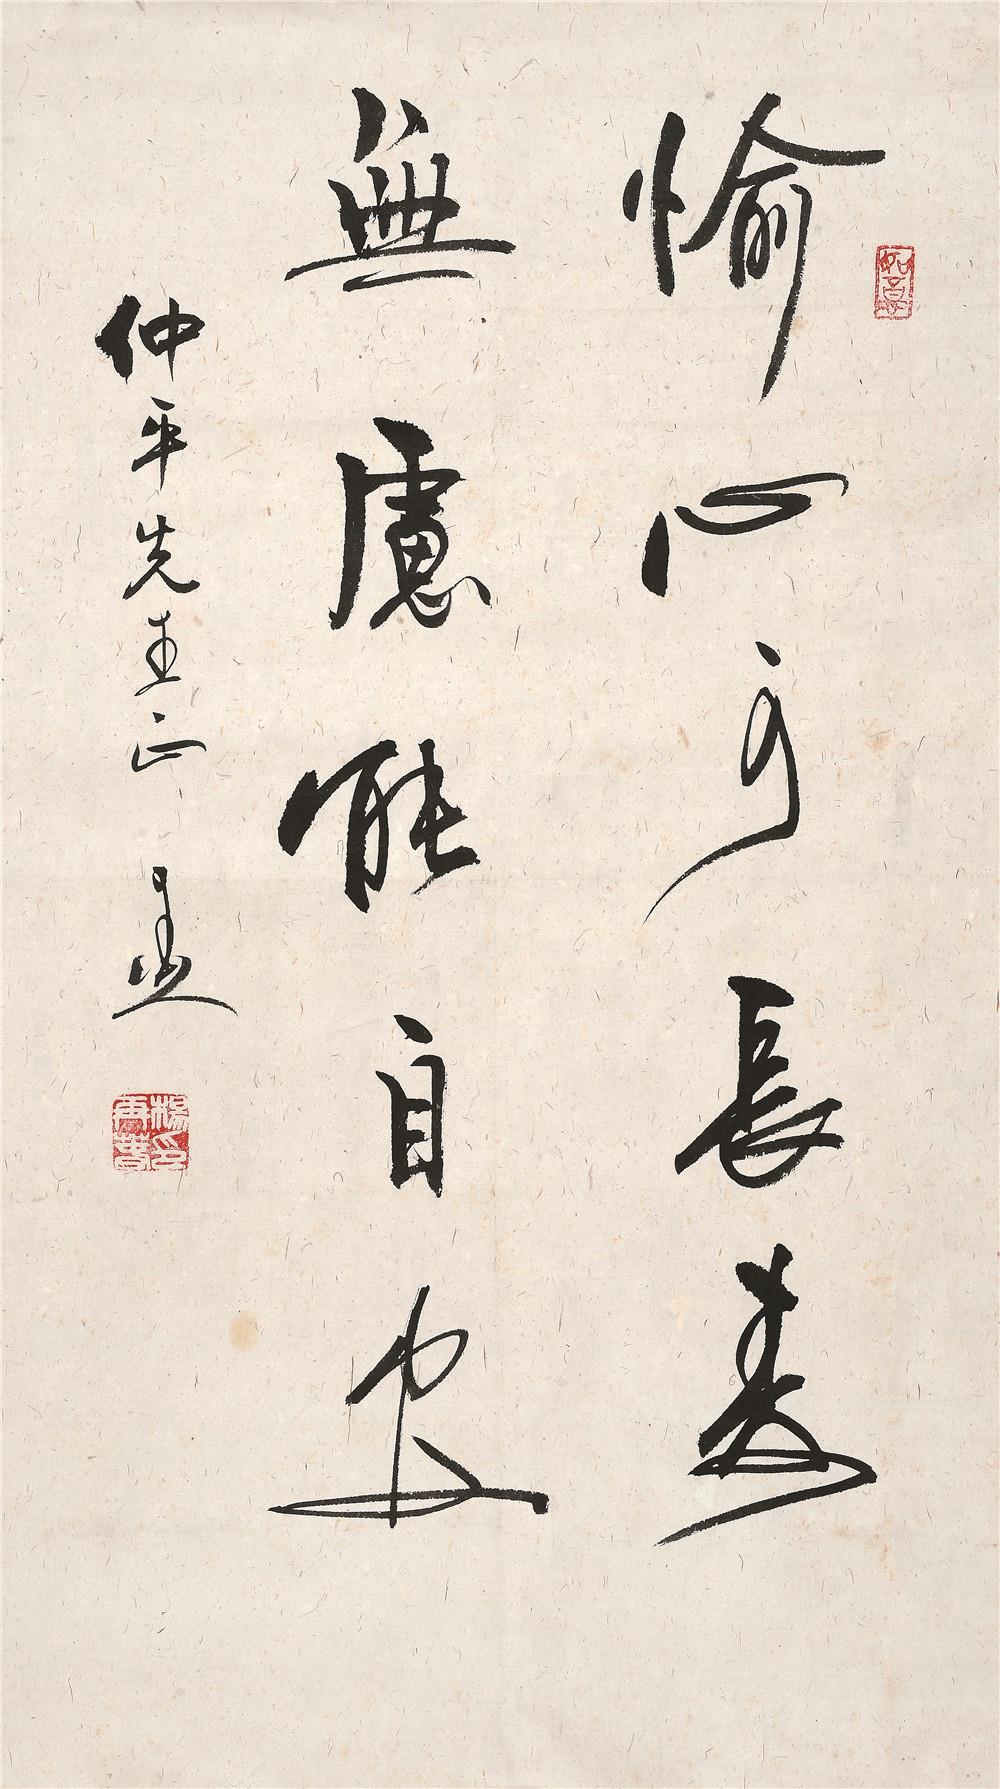 愉心可長壽
無慮能自安
仲平先生正
楊印再春